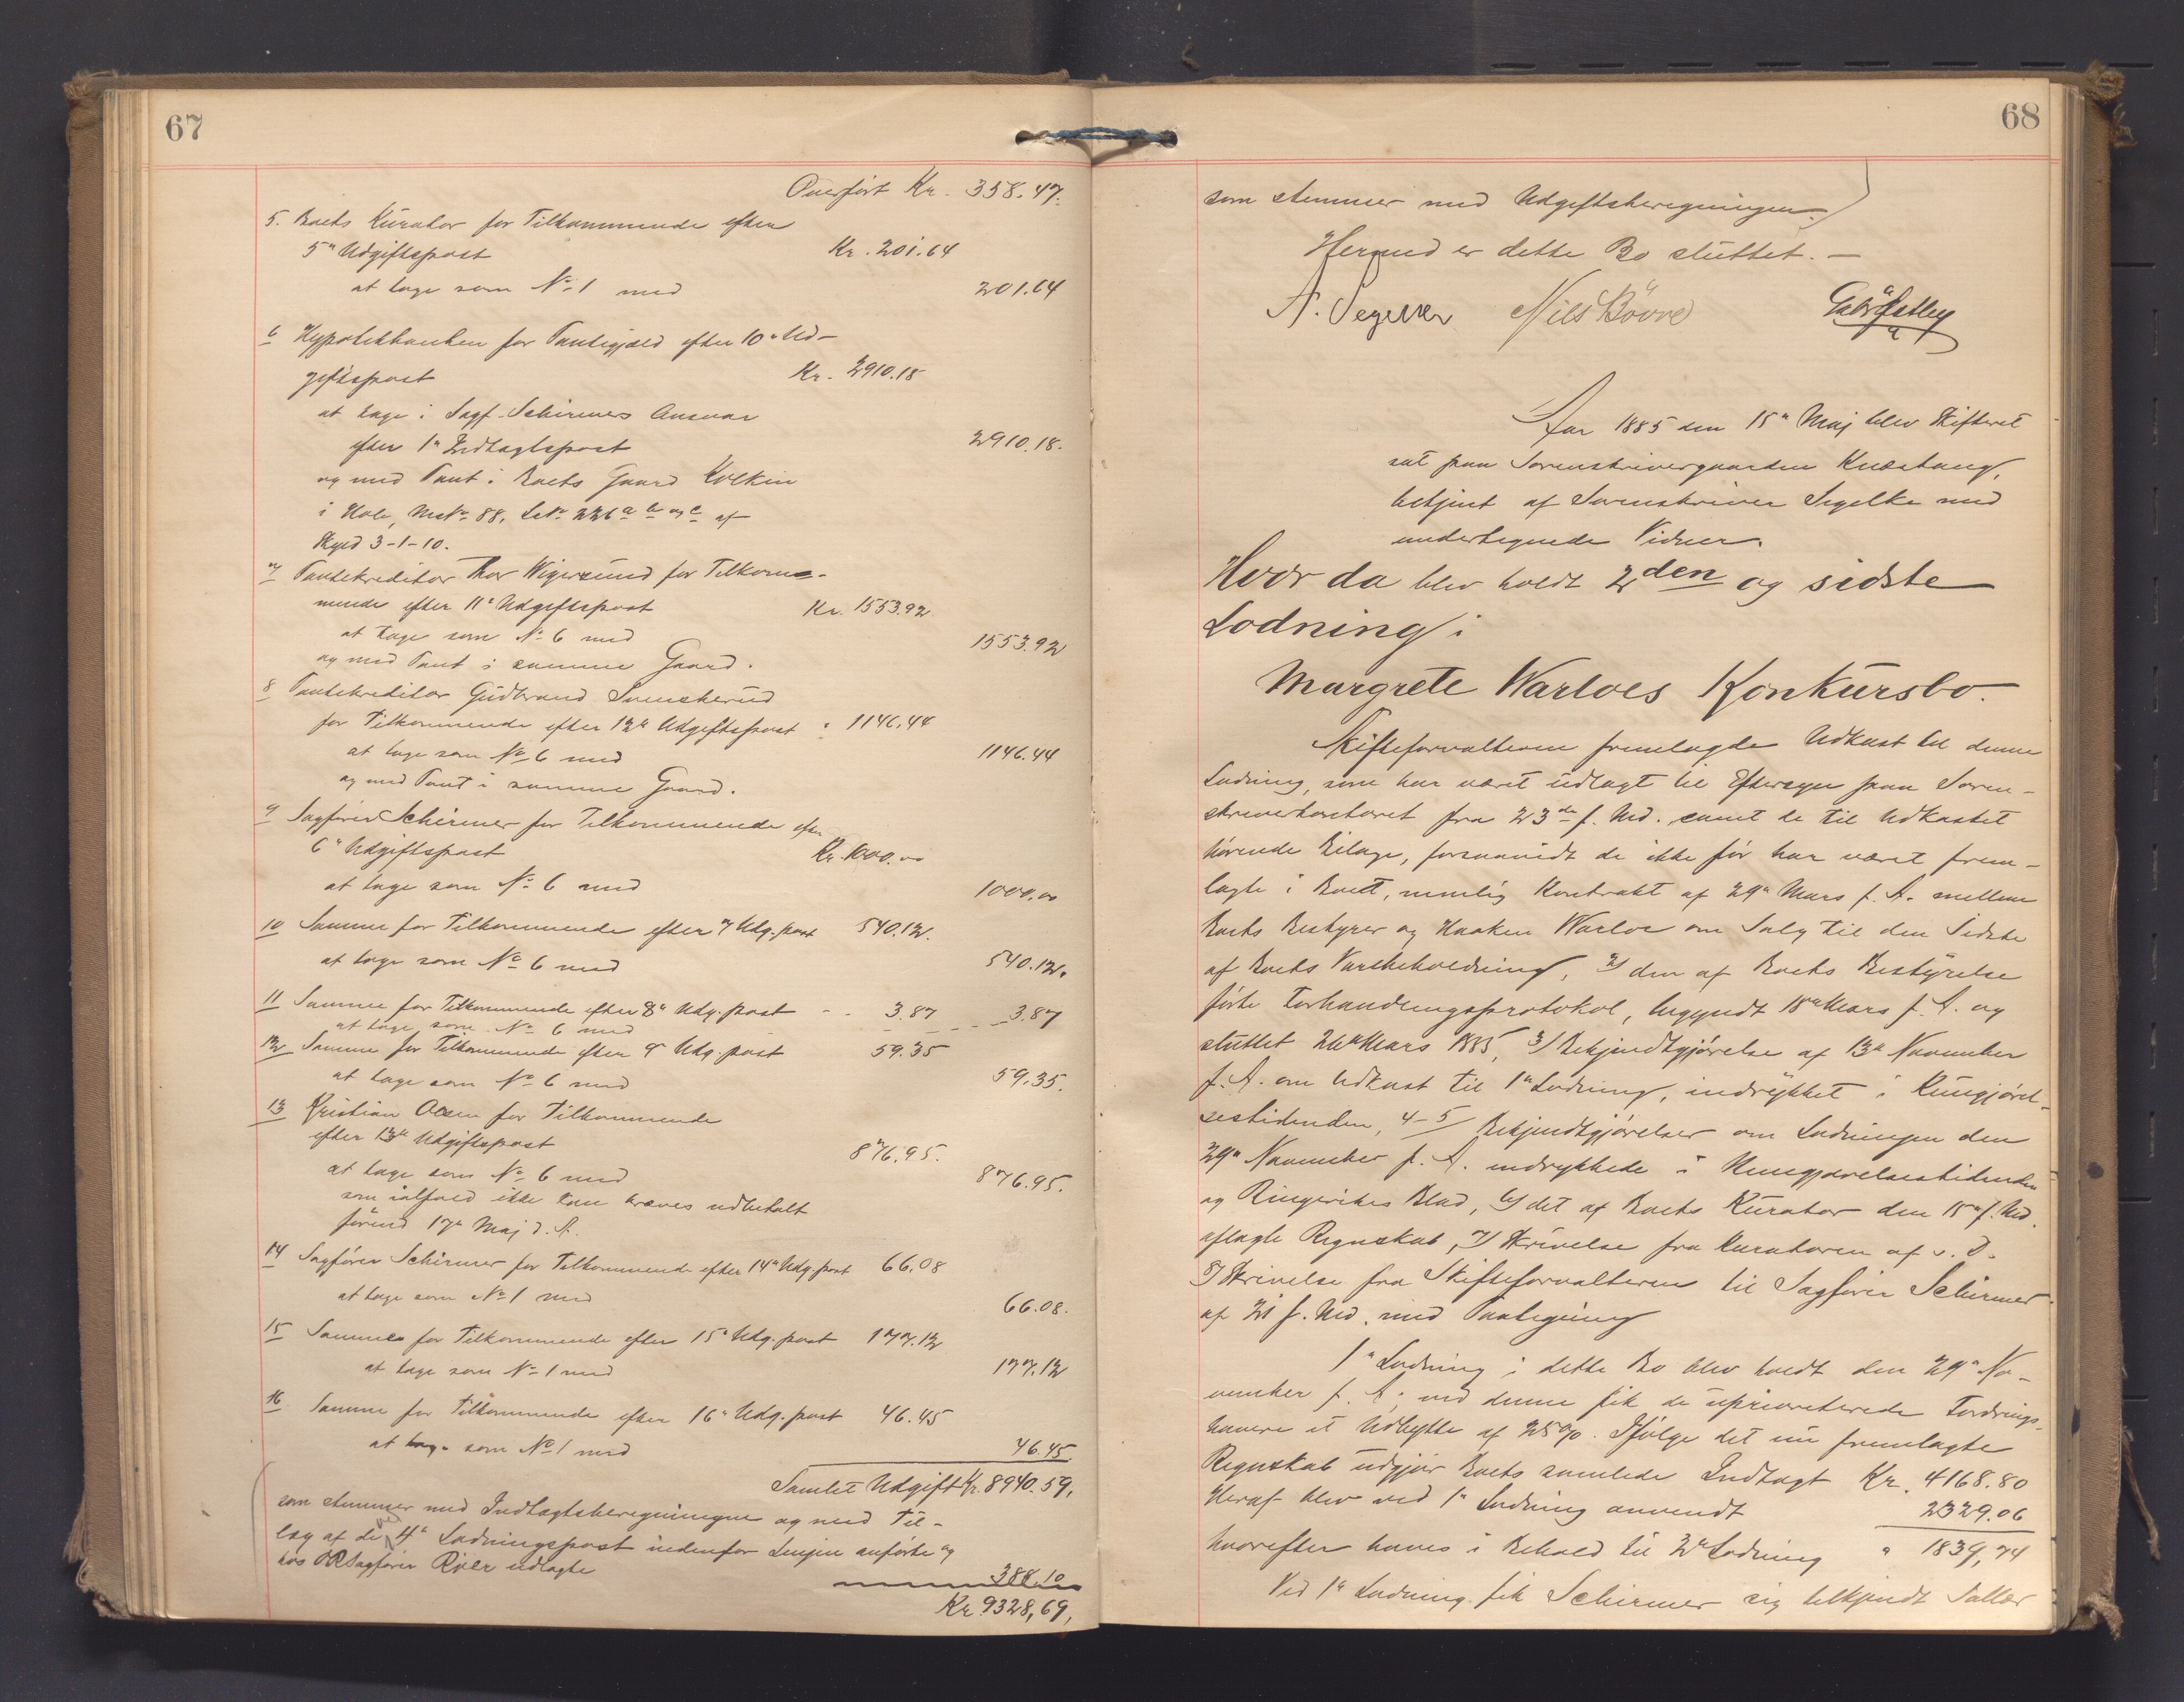 67
Overført Kr. 358.47.
5. Boets Kurator for Tilkommende efter
5te Udgiftspost Kr. 201.64
at tage som No 1 med 201.64
6 Hypothekbanken for Pantegjæld efter 10de Ud-
giftspost Kr. 2910.18
at tage i Sagf. Schirmers Ansvar
efter 1ste Indtægtspost 2910.18.
og med Pant i Boets Gaard
i Hole, Mat. No 88, L. No 226 a b og c af
Skyld 3-1-10.
7 Pantekreditor Thor Wigersund for Tilkom-
mende efter 11te Udgiftspost Kr. 1553.92
at tage som No 6 med 1553.92
og med Pant i samme Gaard.
8 Pantekreditor Gudbrand Svenskerud
for Tilkommende efter 12te Udgiftspost " 1146.44
at tage som No 6 med 1146.44
og med Pant i samme Gaard.
9 Sagfører Schirmer for Tilkommende efter
6te Udgiftspost Kr. 1000.00
at tage som No 6 med 1000.00
10 Samme for Tilkommende efter 7 Udg. post 540.12.
at tage som No 6 med 540.12.
11 Samme for Tilkommende efter 8de Udg. post - - 3.87 3.87
at tage som No 6 med
12 Samme for Tilkommende efter 9 Udg. post 59.35
at tage som No 6 med 59.35.
13 Kristian Olsen for Tilkommende
efter 13de Udgiftspost 876.95.
at tage som No 6 med 876.95.
som ialfald ikke kan kræves udbetalt
førend 17de Maj d. A.
14 Sagfører Schirmer for Tilkommende efter 14de Udg. post 66.08
at tage som No 1 med 66.08.
15 Samme for Tilkommende efter 15de Udg. post 177.12
at tage som No 1 med 177.12
16 Samme for Tilkommende efter 16de Udg. post 46.45
at tage som No 1 med 46.45
Samlet Udgift Kr. 8940.59,
som stemmer med Indtægtsberegningen og med Til-
læg af de ved 4de Lodningspost nedenfor Linjen anførte og
hos ORSagfører Roll udlagte 388.10
Kr. 9328,69,
68
som stemmer med Udgiftsberegningen.
Hermed er dette Bo sluttet. —
A. Segelcke Nils Bövre
Aar 1885 den 15de Maj blev Skifteret
sat paa Sorenskrivergaarden Knæstang,
betjent af Sorenskriver Segelke med
undertegnede Vidner.
Hvor da blev holdt 2den og sidste
Lodning i
Margrete Warloes Konkursbo.
Skifteforvalteren fremlagde Udkast til denne
Lodning, som har været udlagt til Eftersyn paa Soren-
skriverkontoret fra 23de f. Md. samt de til Udkastet
hørende Bilage, forsaavidt de ikke før har været frem-
lagte i Boet, nemlig Kontrakt af 29de Mars f. A. mellem
Boets Bestyrer og Haaken Warloe om Salg til den Sidste
af Boets Varebeholdning, 2/ den af Boets Bestyrelse
førte Forhandlingsprotokol, begyndt 18de Mars f. A. og
sluttet 26de Mars 1885, 3/ Bekjendtgjørelse af 13de November
f. A. om Udkast til 1ste Lodning, indrykket i Kungjørel-
sestidenden, 4-5/ Bekjendtgjørelser om Lodningen den
29de November f. A. indrykkede i Kungjørelsestidenden
og Ringerikes Blad, 6/ det af Boets Kurator den 15de f. Md.
aflagte Regnskab, 7/ Skrivelse fra Kuratoren af s. D.
8/ Skrivelse fra Skifteforvalteren til Sagfører Schirmer
af 21 f. Md. med Paategning
1ste Lodning i dette Bo blev holdt den 29de No-
vember f. A; ved denne fik de uprioriterede Fordrings-
havere et Udbytte af 25%. Ifølge det nu fremlagte
Regnskab udgjør Boets samlede Indtægt Kr. 4168.80
Heraf blev ved 1ste Lodning anvendt 2329.06
hvorefter haves i Behold til 2den Lodning " 1839,74
Ved 1ste Lodning fik Schirmer sig tilkjendt Salær